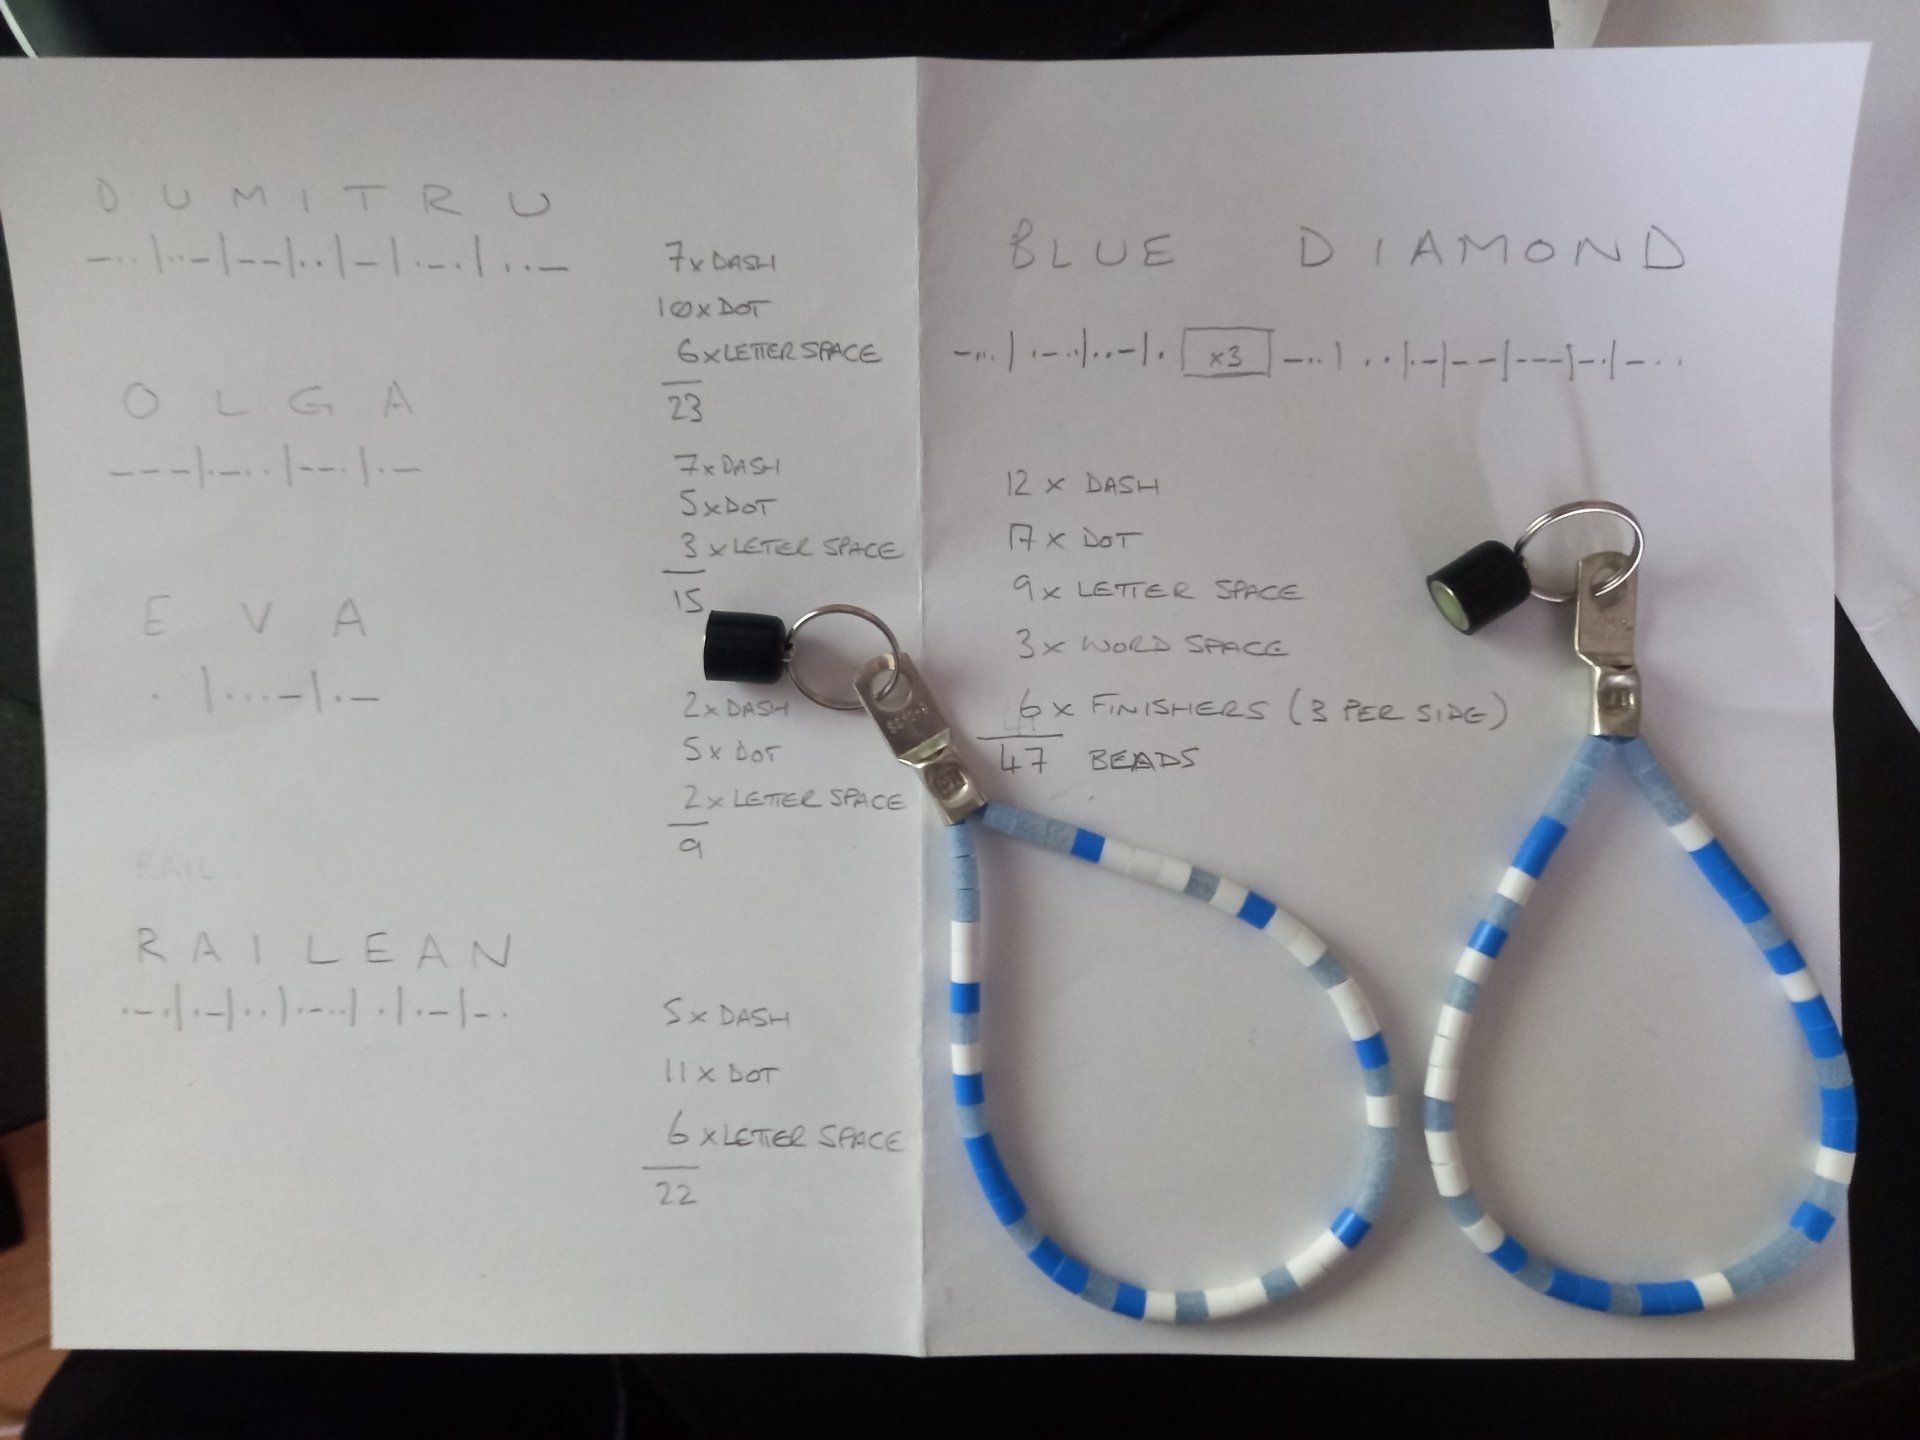 D U M I T R U
-··|··-|--|··|-|·-·|··-
7xDASH
10xDOT
6xLETTER SPACE
23
O L G A
---|·-··|--·|·-
7xDASH
5xDOT
3xLETTER SPACE
15
E V A
·|···-|·-
2xDASH
5xDOT
2xLETTER SPACE
9
RAIL
R A I L E A N
·-·|·-|··|·-··|·|·-|-·
5xDASH
11xDOT
6xLETTER SPACE
22
BLUE DIAMOND
-···|·-··|··-|· x3 -··|··|·-|--|---|-·|-··
12 x DASH
17 x DOT
9x LETTER SPACE
3x WORD SPACE
6x FINISHERS (3 PER SIDE)
47 BEADS